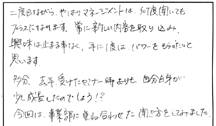 二度目ながら、やはりマネージメントは、何度聞いても
プラスになります。常に新しい内容を取り込み、
興味は止まる事なく、年に1度はパワーをもらったいと
思います
多分 去年受けたセミナー時よりも 自分自身が
少し成長したのでしょう!?
今回は、事業部に重ね合わせた聞き方をしておりました。